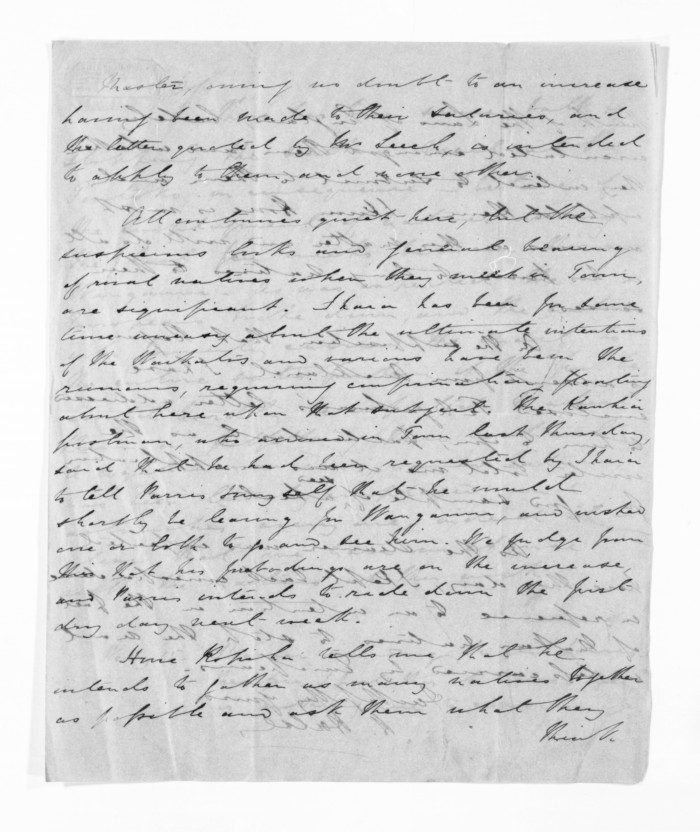 Master, owing no doubt to an increase
having been made to their salaries, and
the letter quoted by Mr Leech is intended
to apply to them and none other.
All continues quiet here, but the
suspicious looks and general bearing
of rival natives when they meet in Town,
are significant. Ihaia has been for some
time uneasy about the ultimate intentions
of the Waikatos and various have been the
rumours, requiring confirmation, floating
about here upon that subject. The Kawhia
postman, who arrived in Town last Thursday,
said that he had been requested by Ihaia
to tell Parris &amp; myself that he would
shortly be leaving for Wanganui, and wished
one or both to go and see him. We judge from
this that his forebodings are on the increase,
and Parris intends to ride down the first
dry day next week.
Hone Ropiha tells me that he
intends to gather as many natives together
as possible and ask them what they
think